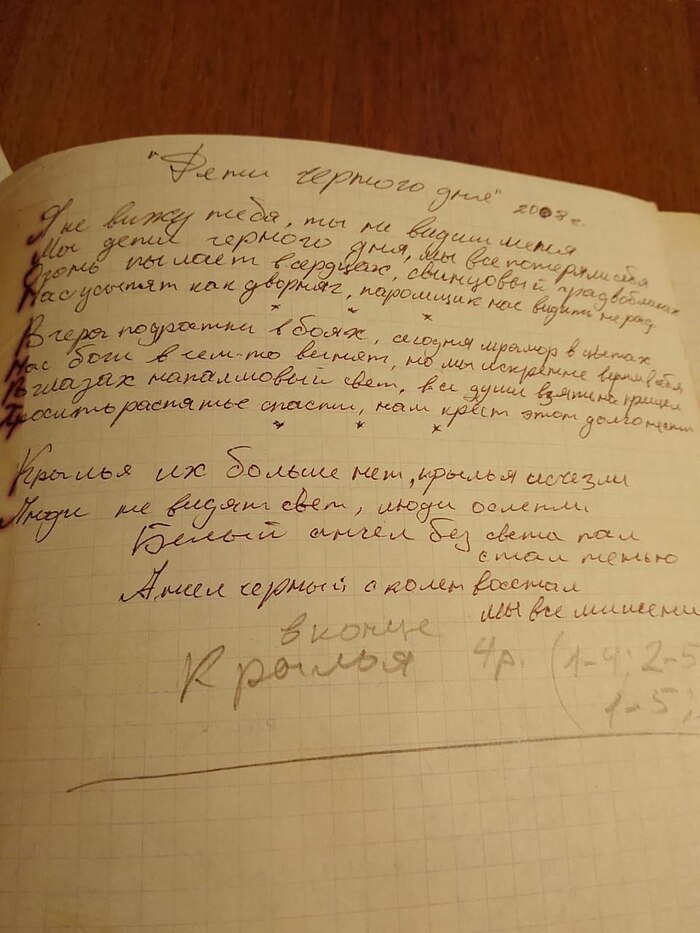 "Дети черного дня" 2008 г.
Я не вижу тебя, ты не видиш меня
Мы дети черного дня, мы все потеряли себя
Огонь пылает в сердцах, свинцовый град в облаках
Нас усыпят как дворняг, паромщик нас видить не рад
* * *
Вчера подростки в боях, сегодня мрамор в цветах
Нас боги в чем-то винят, но мы искренне верим в себя
В глазах напалмовый свет, все души взяты на прицел
Просить распятье спасти, нам крест этот долго нести
* * *
Крылья их больше нет, крылья исчезли
Люди не видят свет, люди ослепли
Белый ангел без света пал
стал тенью
Ангел черный с колен восстал
мы все мишени
в конце
Крылья 4р. (1-4; 2-5
1-5;